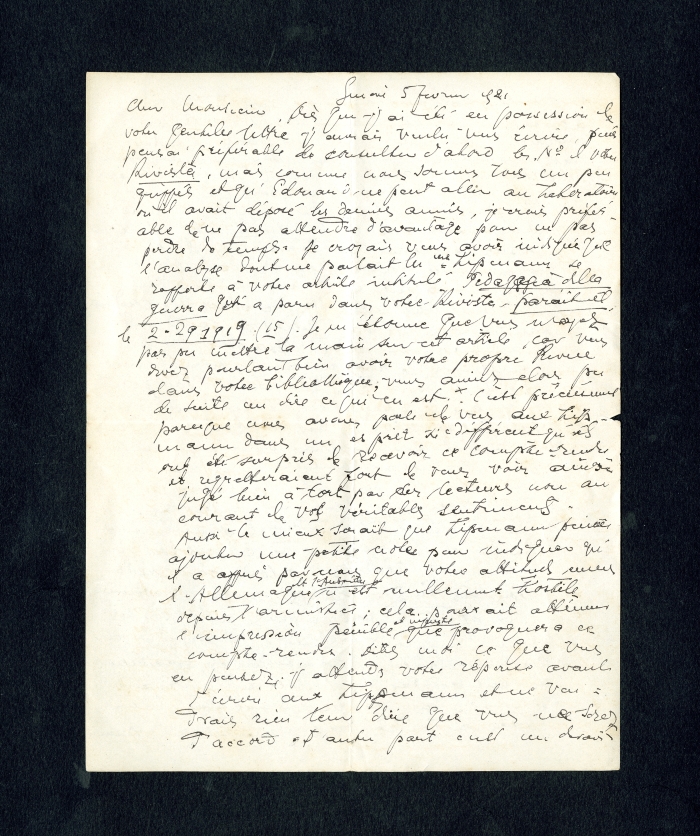 5 février 1921
Cher Monsieur, Dès que j'ai été en possession de
votre gentille lettre j'aurais voulu vous écrire, puis
pensai préférable de consulter d'abord les Nos de votre
Rivista, mais comme nous sommes tous un peu
grippés et qu'Edouard ne peut aller au Laboratoire
où il avait déposé les derniers années, je crois préfér-
able de ne pas attendre d'avantage pour ne pas
perdre de temps. Je croyais vous avoir indiqué que
l'analyse dont me parlait la Lipmann se
rapporte à votre article intitulé "Pedagogia della
guerra qui a paru dans votre Rivista
le 2-29 1919 (15). Je m'étonne que vous n'ayez
pas pu mettre la main sur cet article, car vous
devez pourtant bien avoir votre propre Revue
dans votre bibliothèque, vous auriez alors pu
de suite me dire ce qui en est. C'est précisément
parce que nous avons parlé de vous aux Lipp-
mann dans un esprit si différent qu'ils
ont été surpris de recevoir ce compte-rendu
et regretteraient fort de vous voir ainsi
jugé bien à tort par ses lecteurs non au
courant de vos véritables sentiments.
Aussi le mieux serait que Lipmann puisse
ajouter une petite note pour indiquer qu'
il a appris par nous que votre attitude envers
l'Allemagne n'a été nullement hostile
depuis l'armistice; cela pourrait atténuer
l'impression pénible que provoquera ce
compte-rendu. Dites moi ce que vous
en pensez; j'attends votre réponse avant
d'écrire aux Lippmann et ne vou-
drais rien leur dire que vous ne soyez
d'accord et autre part c'est un